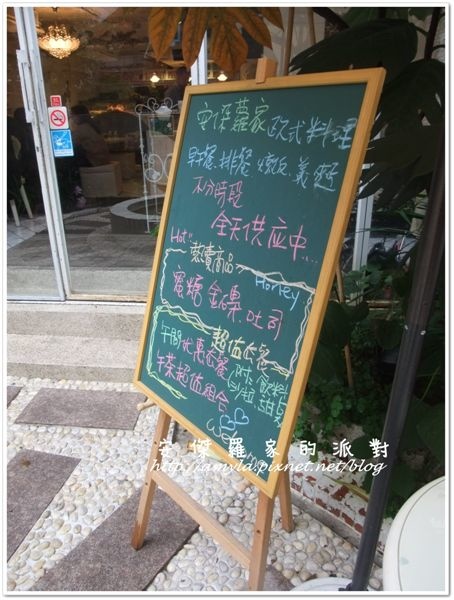 安傑羅家 欧式料理
早餐.排餐.燉飯.義麵
不分時段
全天供应中...
Hot"
熱賣商品
Honey
蜜糖金磚吐司
超值套餐
午間优惠套餐
午茶超值組合
附飲料
沙拉 甜点
安傑羅家的派對
http://amyla.pixnet.net/blog